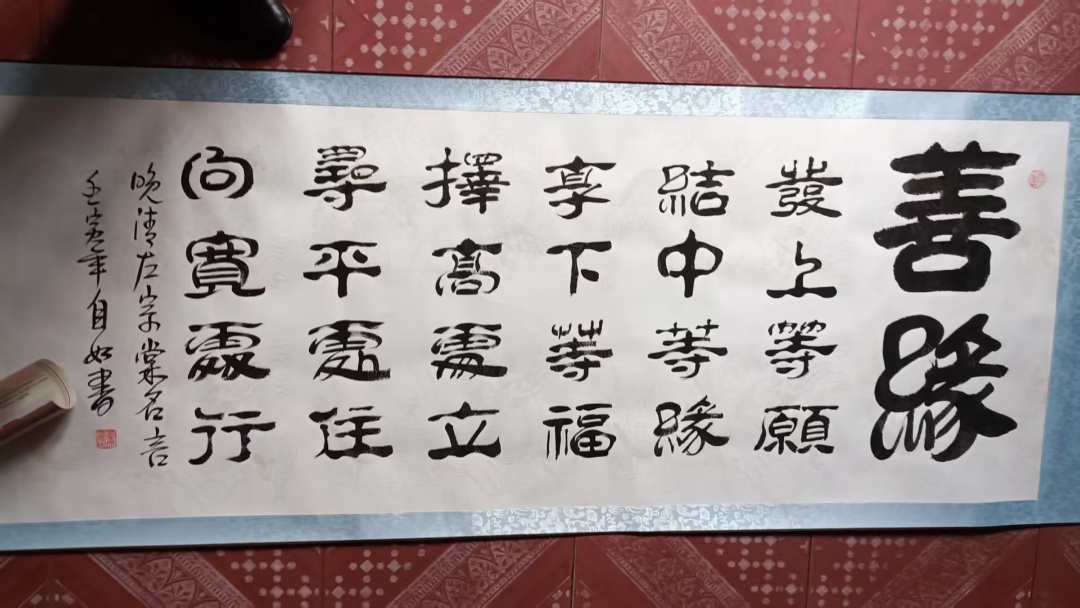 善緣
發上等願
結中等緣
享下等福
擇高處立
尋平處住
向寬處行
晚清左宗棠名言
壬寅年自如書